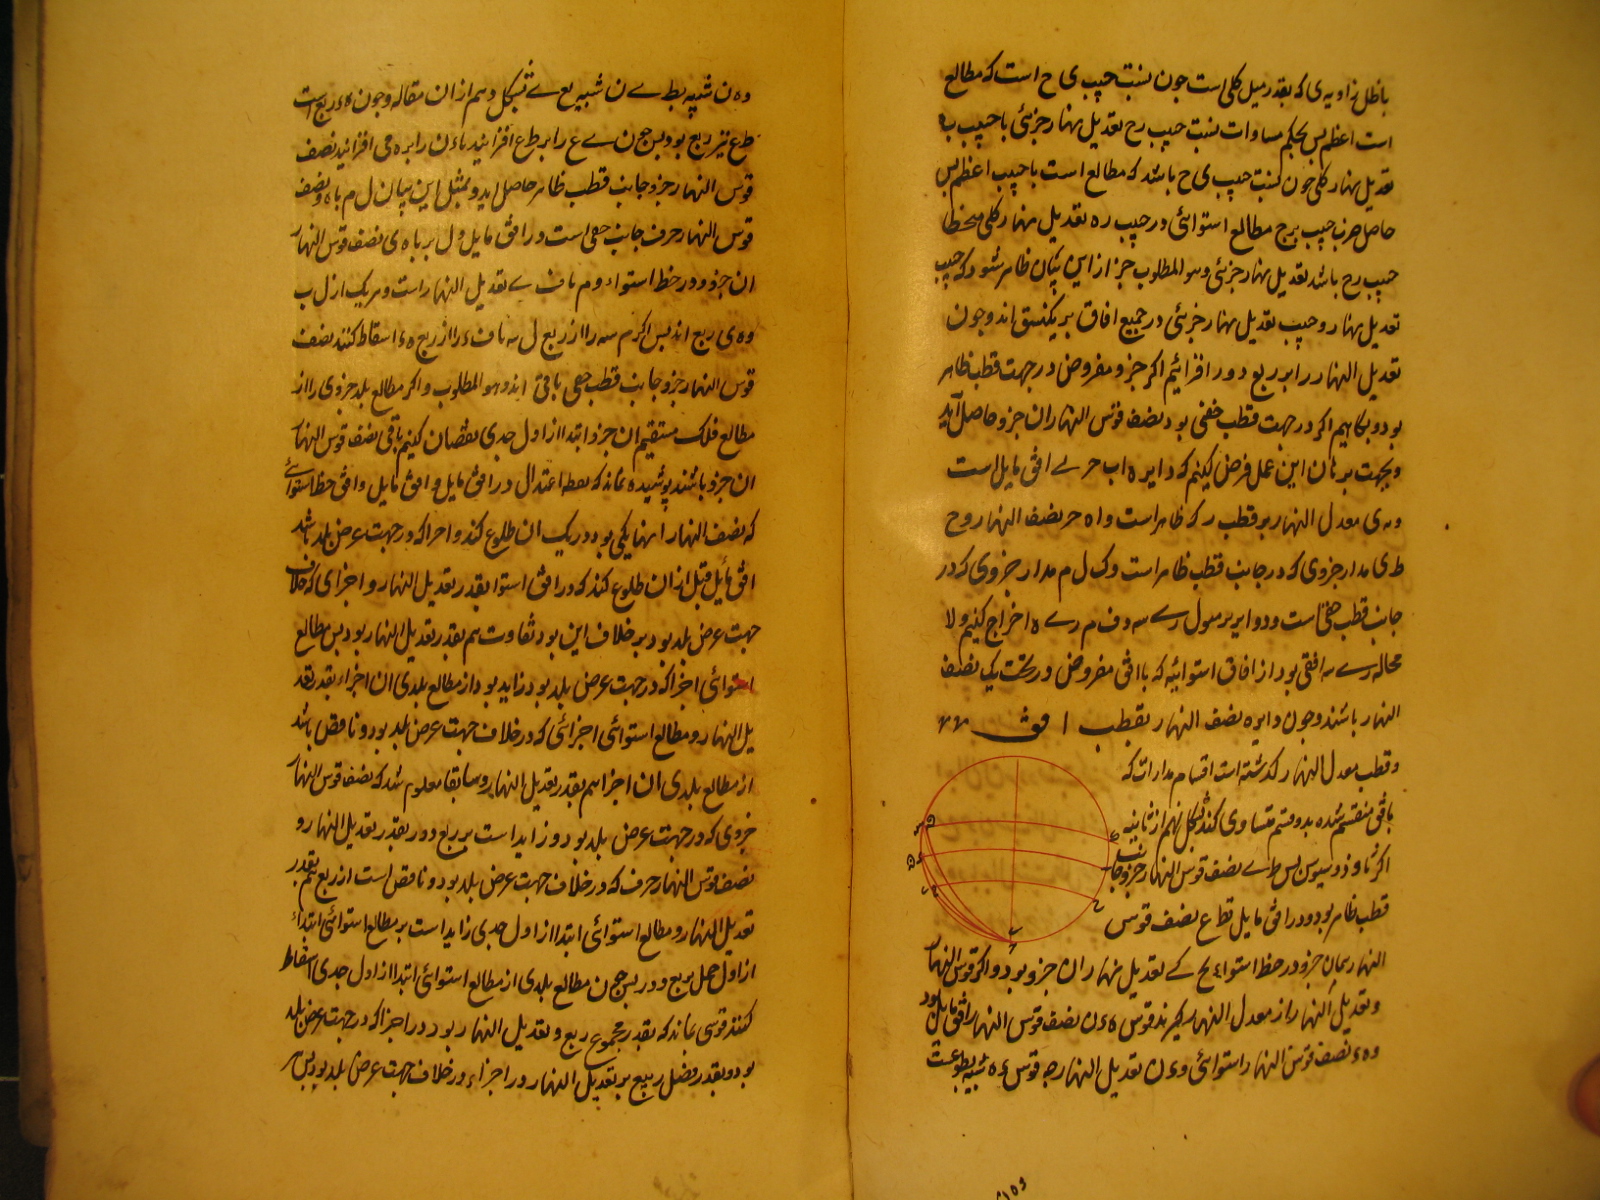 باظل زاویه ی که بقدر میل کلی است جون نسبت جیب ی ح است که مطالع
است اعظم پس بحکم مساوات نسبت جیب رح تعدیل نهار جزئی با جیب ب ه
تعدیل نهار کلی جون نسبت جیب ی ح باشد که مطالع است با جیب اعظم پس
حاصل ضرب جیب برج مطالع استوائی در جیب ره تعدیل نهار کلی منحطا
جیب رح باشد تعدیل نهار جزئی وهو المطلوب جز از این بیان ظاهر شود که جیب
تعدیل نهار و جیب تعدیل نهار جزئی در جمیع افاق بر یک نسق اند و جون
تعدیل النهار را بر ربع دور افزائیم اکر جزو مفروض در جهت قطب ظاهر
بود و بکاهیم اکر در جهت قطب خفی بود نصف قوس النهار ان جزو حاصل آید
و بجهت برهان این عمل فرض کنیم که دایره اب حر ے افق مایل است
و ه ی معدل النهار بر قطب ر که ظاهر است و اه حر نصف النهار و ح
ط ی مدار جزوی که در جانب قطب ظاهر است و ک ل م مدار جزوی که در
جانب قطب خفی است و دوایر بر میول رے سه و ف م رے ه اخراج کنیم و لا
محاله رے سه افقی بود از افاق استوائیه که با افق مفروض در تحت یک نصف
النهار باشند و جون دایره نصف النهار بقطب افق
و قطب معدل النهار کذشته است اقسام مدارات که
باقی منقسم شده بدو قسم متساوی کند بشکل نهم از ثانیه
اکر ثاوذوسیوس پس ط ے نصف قوس النهار جزو جانب
قطب ظاهر بود و در افق مایل ط ع نصف قوس
النهار همان جزو در خط استواء ع ے تعدیل نهار ان جزو بود و اکر قوس النهار
و تعدیل النهار را از معدل النهار کیرند قوس ه ء ن نصف قوس النهار افق مایل بود
و ه ء نصف قوس النهار استوائی و ء ن تعدیل النهار جه قوس ء ه شبیه بط ع است
و ه ن شبیه بط ے ن شبیه بع ے بشکل دهم از ان مقاله و جون ه ء ربع است
ط ع نیز ربع بود پس جون ے ع را بر ط ع افزائید یا ء ن را بر ه ء می افزائید نصف
قوس النهار جزو جانب قطب ظاهر حاصل اید و بمثل این بیان ل م یا ه و نصف
قوس النهار حرف جانب خفی است در افق مایل و ل بر یا ه ی نصف قوس النهار
ان جزو در خط استواء و م یا ف ے تعدیل النهار است و هر یک از ل ب
و ه ی ربع اند پس اکر م سه را از ربع ل سه یا ف ء را از ربع ه ء اسقاط کنند نصف
قوس النهار جزو جانب قطب خفی باقی اند وهو المطلوب و اکر مطالع بلد جزوی را از
مطالع فلک مستقیم ان جزو ابتدا از اول جدی نقصان کنیم باقی نصف قوس النهار
ان جزو باشند پوشیده نماند که نقطه اعتدال در افق مایل و افق مایل و افق خط استوائی
که نصف النهار انها یکی بود در یک ان طلوع کند و اجزا که در جهت عرض بلد باشد
افق مایل قبل از ان طلوع کند که در افق استوا بقدر تعدیل النهار و اجزای که خلاف
جهت عرض بلد بود بر خلاف این بود تفاوت هم بقدر تعدیل النهار بود پس مطالع
استوائی اجزا که در جهت عرض بلد بود زاید بود از مطالع بلدی ان اجزاء بقدر تعد
یل النهار و مطالع استوائی اجزائی که در خلاف جهت عرض بلد بود و ناقص باشد
از مطالع بلدی ان اجزا هم بقدر تعدیل النهار و سابقا معلوم شد که نصف قوس النهار
جزوی که در جهت عرض بلد بود و زاید است بر ربع دور بقدر تعدیل النهار و
نصف قوس النهار حرف که در خلاف جهت عرض بلد بود و ناقص است از ربع هم بقدر
تعدیل النهار و مطالع استوائی ابتدا از اول جدی زاید است بر مطالع استوائی ابتداء
از اول حمل بربع دور پس جون مطالع بلدی از مطالع استوائی ابتدا از اول جدی اسقاط
کنند قوسی بماند که بقدر مجموع ربع و تعدیل النهار بود در اجزا که در جهت عرض بلد
بود و بقدر فضل ربع بر تعدیل النهار در اجزاء در خلاف جهت عرض بلد بود پس